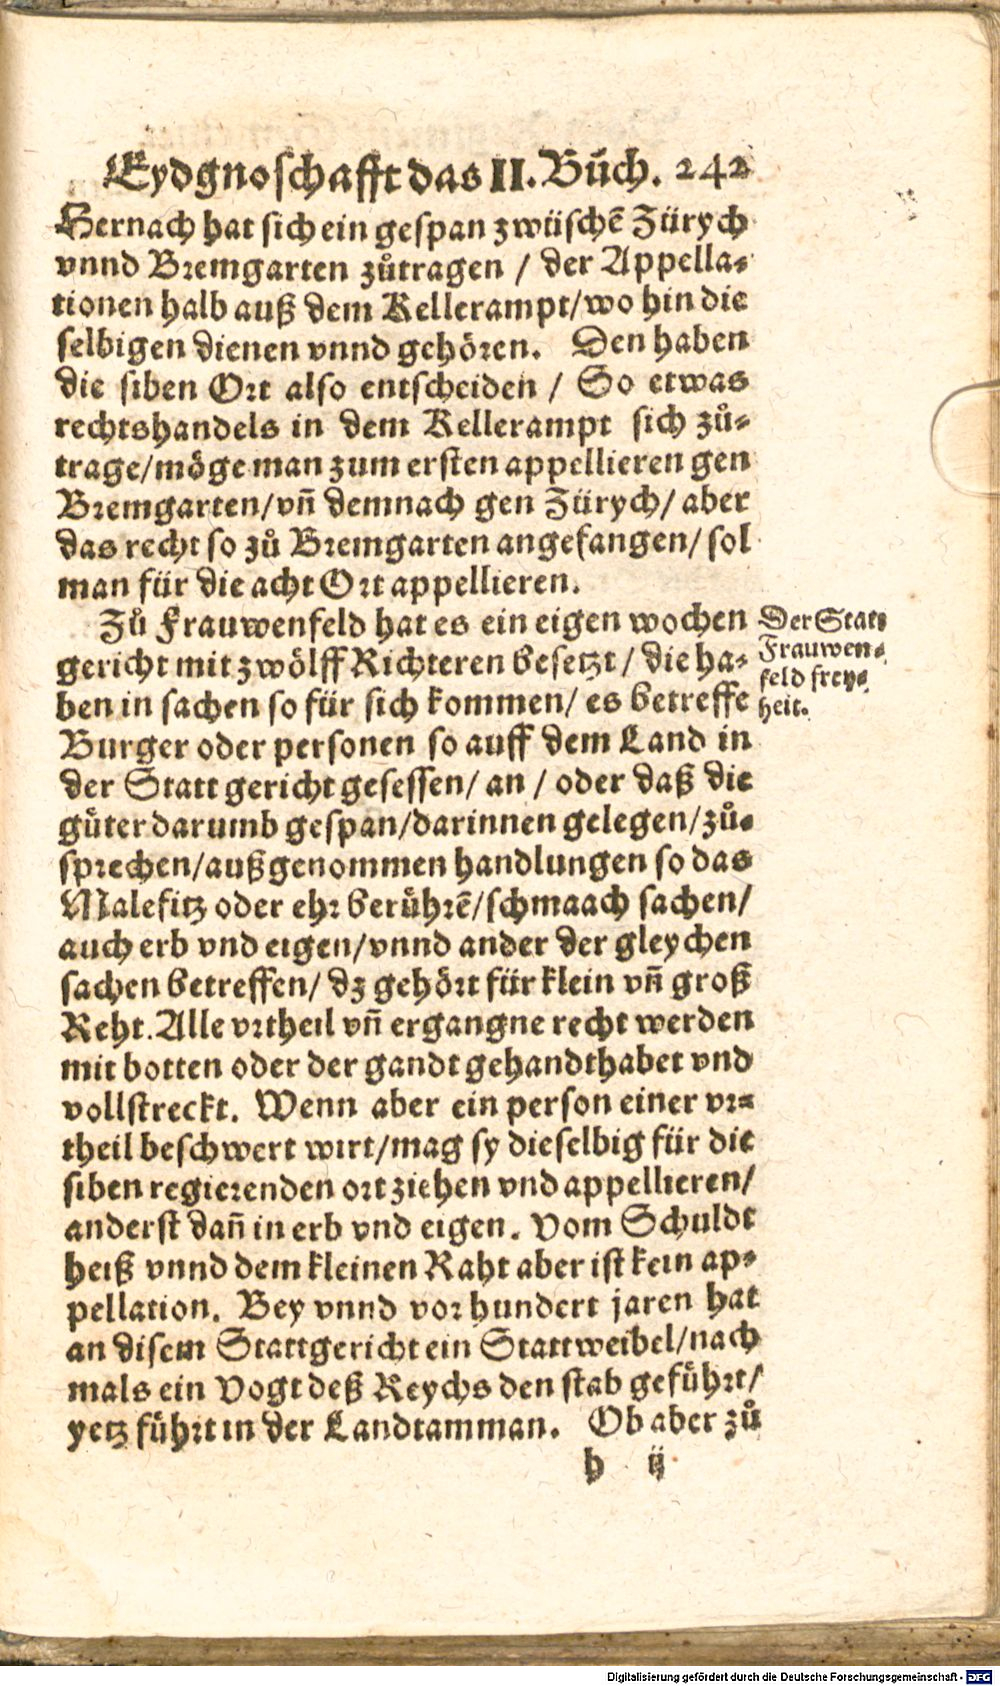 Eydgnoschafft das II. Bůch. 242
Hernach hat sich ein gespan zwüschē Zürych
vnnd Bremgarten zůtragen / der Appella-
tionen halb auß dem Kellerampt/wo hin die
selbigen dienen vnnd gehören. Den haben
die siben Ort also entscheiden / So etwas
rechtshandels in dem Kellerampt sich zů-
trage/möge man zum ersten appellieren gen
Bremgarten/vñ demnach gen Zürych/ aber
das recht so zů Bremgarten angefangen/ sol
man für die acht Ort appellieren.
Zů Frauwenfeld hat es ein eigen wochen
gericht mit zwölff Richteren besetzt / die ha-
ben in sachen so für sich kommen/ es betreffe
Burger oder personen so auff dem Land in
der Statt gericht gesessen/ an / oder daß die
gůter darumb gespan/darinnen gelegen/zů-
sprechen/außgenommen handlungen so das
Malefitz oder ehr berůhrē/schmaach sachen/
auch erb vnd eigen/vnnd ander der gleychen
sachen betreffen/ dz gehört für klein vñ groß
Reht. Alle vrtheil vñ ergangne recht werden
mit botten oder der gandt gehandthabet vnd
vollstreckt. Wenn aber ein person einer vr-
theil beschwert wirt/mag sy dieselbig für die
siben regierenden ort ziehen vnd appellieren/
anderst dañ in erb vnd eigen. Vom Schuldt
heiß vnnd dem kleinen Raht aber ist kein ap-
pellation. Bey vnnd vor hundert jaren hat
an disem Stattgericht ein Stattweibel/nach
mals ein Vogt deß Reychs den stab geführt/
yetz führt in der Landtamman. Ob aber zů
h ij
Der Statt
Frauwen-
feld frey-
heit.
Digitalisierung gefördert durch die Deutsche Forschungsgemeinschaft - DFG